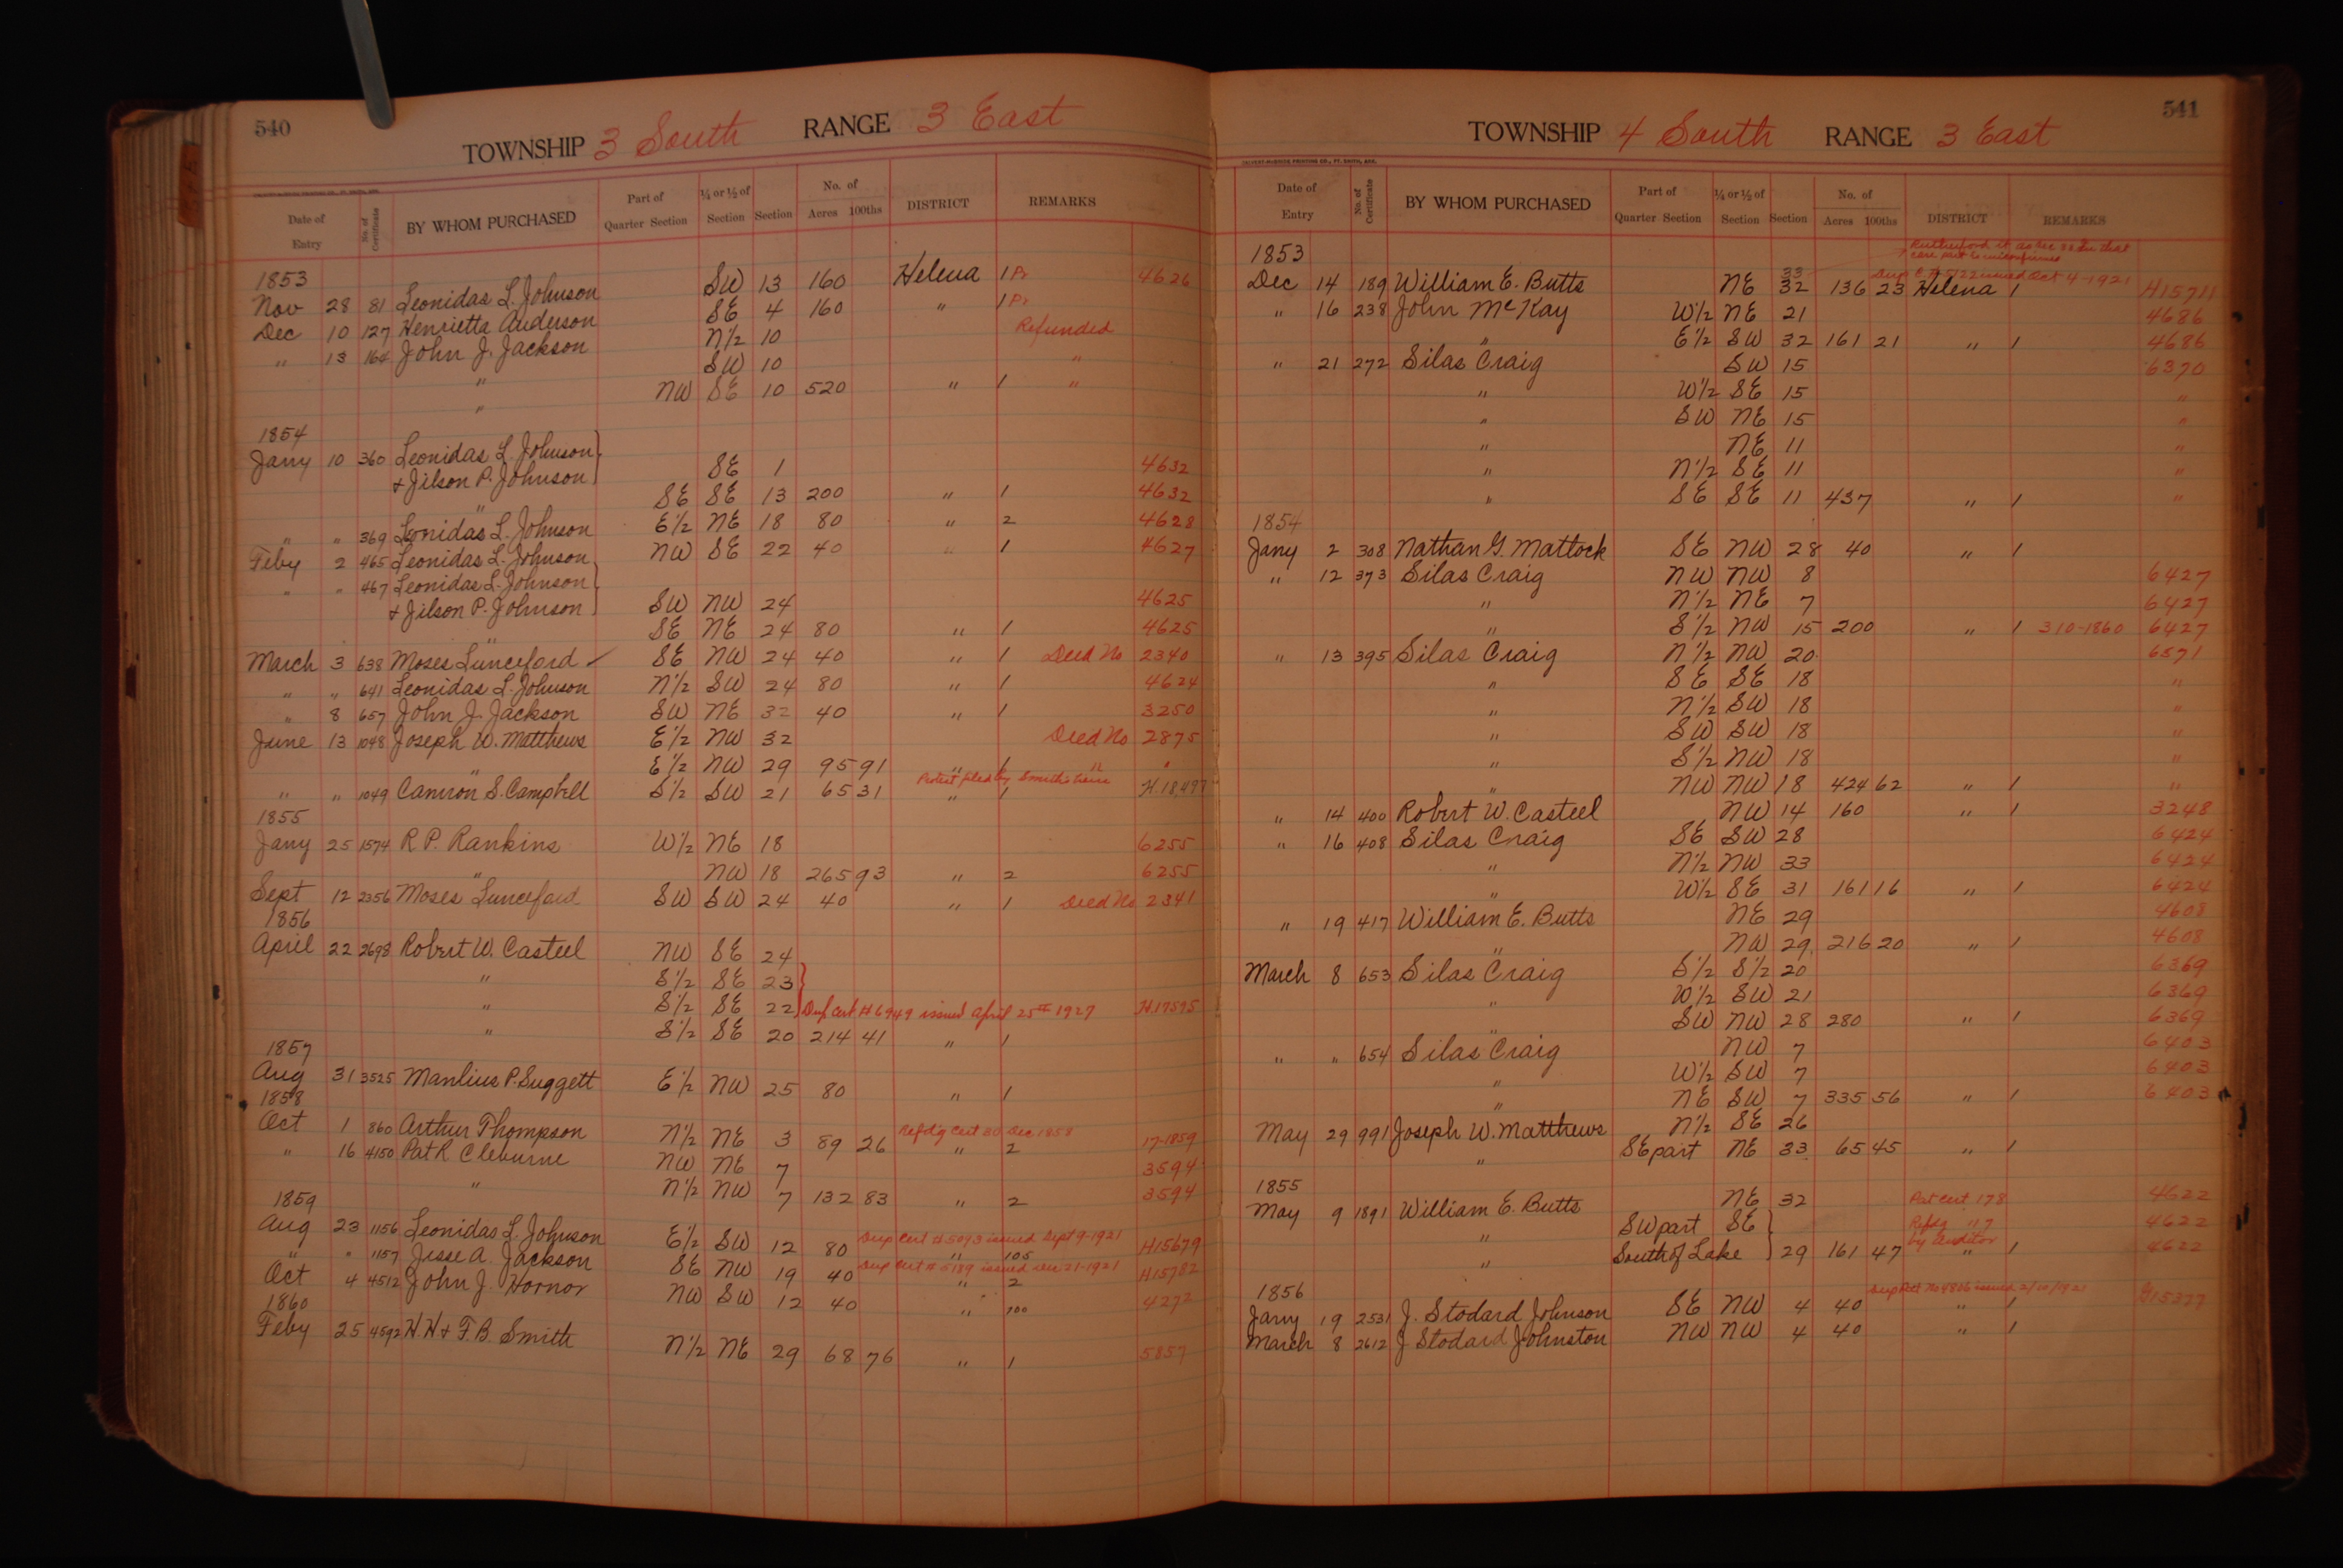 540
TOWNSHIP 3 South RANGE 3 East
Date of Entry No. of Certificate BY WHOM PURCHASED Part of Quarter Section ¼ or ½ of Section Section No. of Acres 100ths DISTRICT REMARKS
1853
Nov 28 81 Leonidas L. Johnson SW 13 160 Helena 1 Pr 4626
Dec 10 127 Henrietta Anderson SE 4 160 " 1 Pr
" 13 164 John J. Jackson N½ 10 Refunded
" SW 10 "
" NW SE 10 520 " 1 "
1854
Jany 10 360 Leonidas L. Johnson
& Jilson P. Johnson SE 1 4632
" SE SE 13 200 " 1 4632
" " 369 Leonidas L. Johnson E½ NE 18 80 " 2 4628
Feby 2 465 Leonidas L. Johnson NW SE 22 40 " 1 4627
" " 467 Leonidas L. Johnson
& Jilson P. Johnson SW NW 24 4625
" SE NE 24 80 " 1 4625
March 3 638 Moses Lunceford SE NW 24 40 " 1 Deed No 2340
" " 641 Leonidas L. Johnson N½ SW 24 80 " 1 4624
" 8 657 John J. Jackson SW NE 32 40 " 1 3250
June 13 1048 Joseph W. Matthews E½ NW 32 Deed No 2875
" E½ NW 29 95 91 " 1 " "
Protest filed by Smith's heirs
" " 1049 Camron S. Campbell S½ SW 21 65 31 " 1 H.18,497
1855
Jany 25 1574 R P. Rankins W½ NE 18 6255
" NW 18 265 93 " 2 6255
Sept 12 2356 Moses Lunceford SW SW 24 40 " 1 Deed No 2341
1856
April 22 2698 Robert W. Casteel NW SE 24
" S½ SE 23
" S½ SE 22 Dup Cert # 6949 issued April 25th 1927 H.17575
" S½ SE 20 214 41 " 1
1857
Aug 31 3525 Manlius P. Suggett E½ NW 25 80 " 1
1858
Refd'g Cert 30 Dec 1858
Oct 1 860 Arthur Thompson N½ NE 3 89 26 " 2 17-1859
" 16 4150 Pat R Cleburne NW NE 7 3594
" N½ NW 7 132 83 " 2 3594
1859
Dup Cert # 5093 issued Sept 9-1921
Aug 23 1156 Leonidas L. Johnson E½ SW 12 80 " 105 H15679
Dup Cert # 5189 issued Dec 21-1921
" " 1157 Jesse A. Jackson SE NW 19 40 " 2 H15782
Oct 4 4512 John J. Hornor NW SW 12 40 " 100 4272
1860
Feby 25 4592 H H & F. B. Smith N½ NE 29 68 76 " 1 5857
541
TOWNSHIP 4 South RANGE 3 East
Date of Entry No. of Certificate BY WHOM PURCHASED Part of Quarter Section ¼ or ½ of Section Section No. of Acres 100ths DISTRICT REMARKS
1853
Dup C # 5122 issued Oct 4-1921
33
Dec 14 189 William E. Butts NE 32 136 23 Helena 1 H15711
" 16 238 John McKay W½ NE 21 4686
" E½ SW 32 161 21 " 1 4686
" 21 272 Silas Craig SW 15 6370
" W½ SE 15 "
" SW NE 15 "
" NE 11 "
" N½ SE 11 "
" SE SE 11 437 " 1 "
1854
Jany 2 308 Nathan G. Matlock SE NW 28 40 " 1
" 12 373 Silas Craig NW NW 8 6427
" N½ NE 7 6427
" S½ NW 15 200 " 1 310-1860 6427
" 13 395 Silas Craig N½ NW 20 6571
" SE SE 18 "
" N½ SW 18 "
" SW SW 18 "
" S½ NW 18 "
" NW NW 18 424 62 " 1 "
" 14 400 Robert W. Casteel NW 14 160 " 1 3248
" 16 408 Silas Craig SE SW 28 6424
" N½ NW 33 6424
" W½ SE 31 161 16 " 1 6424
" 19 417 William E. Butts NE 29 4608
" NW 29 216 20 " 1 4608
March 8 653 Silas Craig S½ S½ 20 6369
" W½ SW 21 6369
" SW NW 28 280 " 1 6369
" " 654 Silas Craig NW 7 6403
" W½ SW 7 6403
" NE SW 7 335 56 " 1 6403
May 29 991 Joseph W. Matthews N½ SE 26
" SE part NE 33 65 45 " 1
1855
May 9 1891 William E. Butts NE 32 Pat Cert 178 4622
" SW part SE Refdg " 7 4622
by Auditor
" South of Lake 29 161 47 " 1 4622
1856
Jany 19 2531 J. Stodard Johnson SE NW 4 40 " 1
March 8 2612 J Stodard Johnston NW NW 4 40 " 1